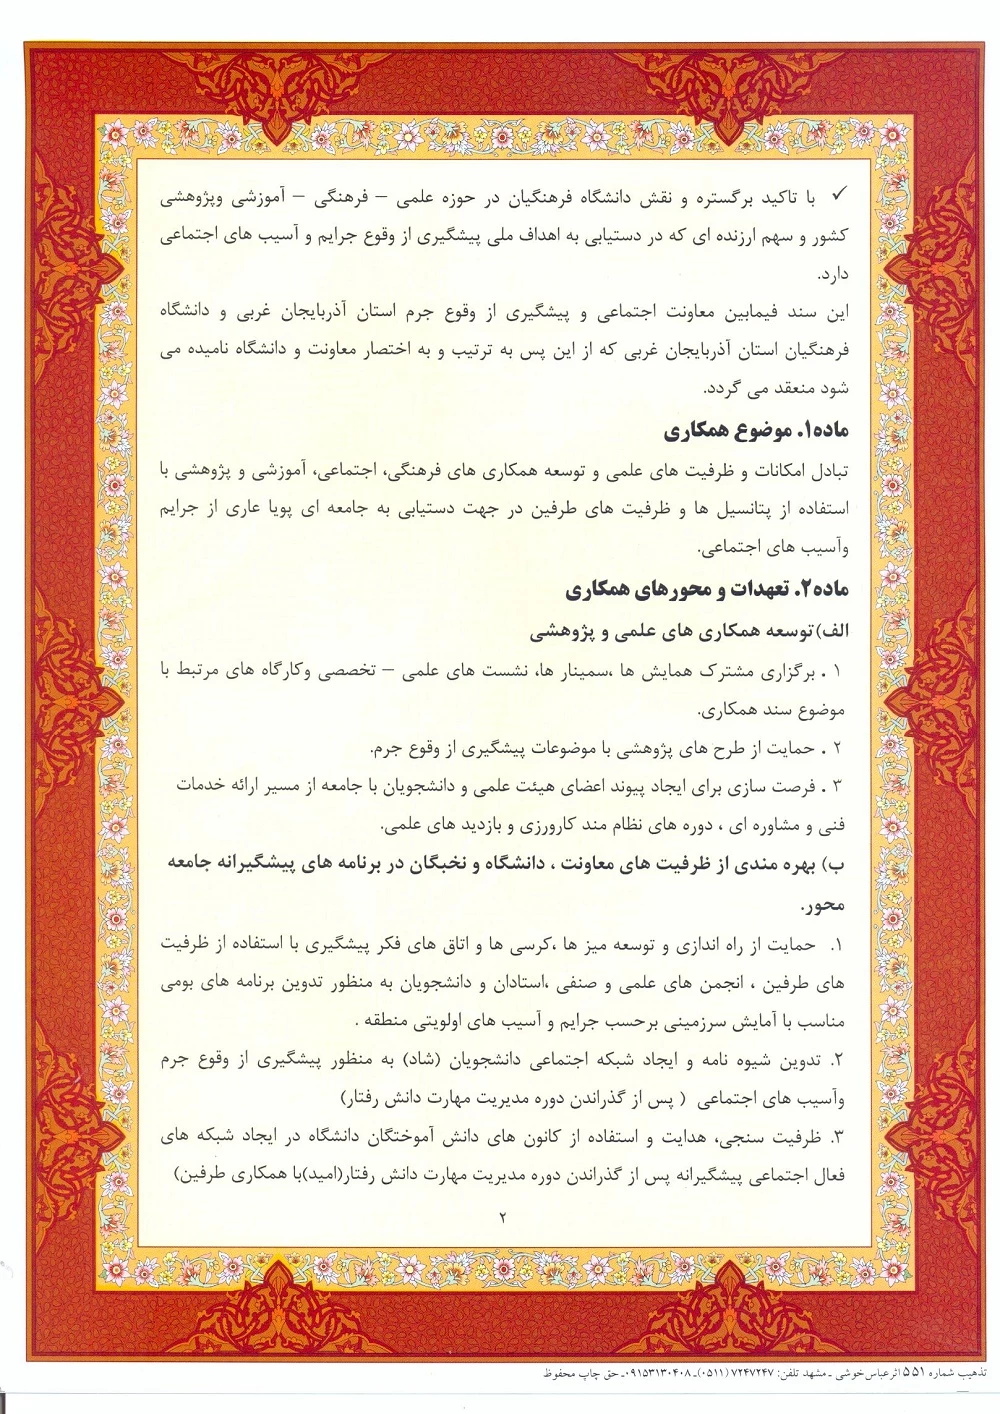 ✓ با تاکید برگستره و نقش دانشگاه فرهنگیان در حوزه علمی – فرهنگی – آموزشی وپژوهشی
کشور و سهم ارزنده ای که در دستیابی به اهداف ملی پیشگیری از وقوع جرایم و آسیب های اجتماعی
دارد.
این سند فیمابین معاونت اجتماعی و پیشگیری از وقوع جرم استان آذربایجان غربی و دانشگاه
فرهنگیان استان آذربایجان غربی که از این پس به ترتیب و به اختصار معاونت و دانشگاه نامیده می
شود منعقد می گردد.
ماده۱. موضوع همکاری
تبادل امکانات و ظرفیت های علمی و توسعه همکاری های فرهنگی، اجتماعی، آموزشی و پژوهشی با
استفاده از پتانسیل ها و ظرفیت های طرفین در جهت دستیابی به جامعه ای پویا عاری از جرایم
وآسیب های اجتماعی.
ماده۲. تعهدات و محورهای همکاری
الف)توسعه همکاری های علمی و پژوهشی
۱ . برگزاری مشترک همایش ها ،سمینار ها، نشست های علمی – تخصصی وکارگاه های مرتبط با
موضوع سند همکاری.
۲ . حمایت از طرح های پژوهشی با موضوعات پیشگیری از وقوع جرم.
۳ . فرصت سازی برای ایجاد پیوند اعضای هیئت علمی و دانشجویان با جامعه از مسیر ارائه خدمات
فنی و مشاوره ای ، دوره های نظام مند کارورزی و بازدید های علمی.
ب) بهره مندی از ظرفیت های معاونت ، دانشگاه و نخبگان در برنامه های پیشگیرانه جامعه
محور.
۱. حمایت از راه اندازی و توسعه میز ها ،کرسی ها و اتاق های فکر پیشگیری با استفاده از ظرفیت
های طرفین ، انجمن های علمی و صنفی ،استادان و دانشجویان به منظور تدوین برنامه های بومی
مناسب با آمایش سرزمینی برحسب جرایم و آسیب های اولویتی منطقه .
۲. تدوین شیوه نامه و ایجاد شبکه اجتماعی دانشجویان (شاد) به منظور پیشگیری از وقوع جرم
وآسیب های اجتماعی ( پس از گذراندن دوره مدیریت مهارت دانش رفتار)
۳. ظرفیت سنجی، هدایت و استفاده از کانون های دانش آموختگان دانشگاه در ایجاد شبکه های
فعال اجتماعی پیشگیرانه پس از گذراندن دوره مدیریت مهارت دانش رفتار(امید)با همکاری طرفین)
۲
تذهیب شماره ۵۵۱ اثرعباس خوشی ـ مشهد تلفن: ۷۲۴۷۲۴۷ (۰۵۱۱)ـ ۰۹۱۵۳۱۳۰۴۰۸ـ حق چاپ محفوظ